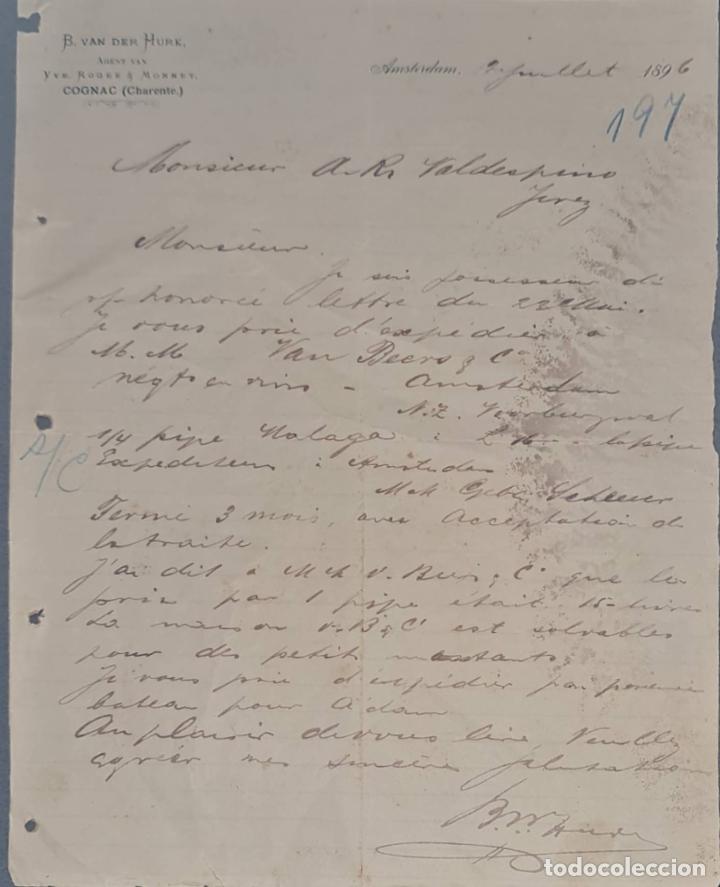 B. VAN DER HURK,
AGENT VAN
VVE. ROGER & MONNET,
COGNAC (Charente.)
Amsterdam, 2 Juillet 1896
197
Monsieur A. R. Valdespino
Jerez
Monsieur.
Je suis possesseur de
honorée lettre du 22 Mai.
Je vous prie d'expédier à
M.M Van Beers & Co
négts en vins - Amsterdam
N.Z. Voorburgwal
A/C
1/4 pipe Malaga à la pipe
Expediteurs : Amsterdam
M.M Gebr. Scheuer
Terme 3 mois, avec Acceptation de
la traite.
J'ai dit à MM v. Beers & Co que le
prix par 1 pipe était 15- livres
La maison v. B & Co est solvables
pour des petits montants,
Je vous prie d'expédier par
bateau pour A'dam
Au plaisir de vous lire, Veuillez
agréer mes sincères
todocoleccion.net